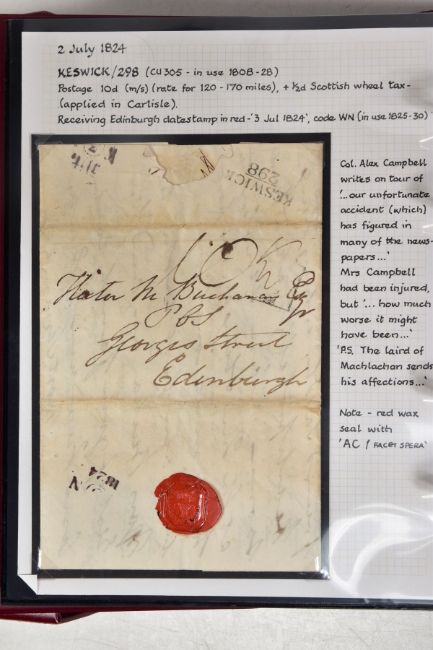 2 July 1824
KESWICK/298 (CU305 - in use 1808-28)
Postage 10d (m/s) (rate for 120 - 170 miles), + ½d Scottish wheel tax -
(applied in Carlisle).
Receiving Edinburgh datestamp in red -'3 Jul 1824', code WN (in use 1825-30)
KESWICK
298
10 ½
Buchanan Esqr
Georges Street
Edinburgh
1824
Col. Alex Campbell
writes on tour of
'...our unfortunate
accident (which)
has figured in
many of the news-
papers...'
Mrs Campbell
had been injured,
but '... how much
worse it might
have been...'
'P.S. The laird of
Machlachan sends
his affections...'
Note - red wax
seal with
'AC / FACET SPERA'